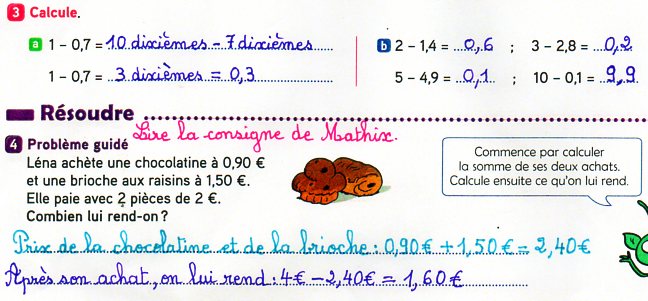 3 Calcule.
a 1 – 0,7 = 10 dixièmes – 7 dixièmes
1 – 0,7 = 3 dixièmes = 0,3
b 2 – 1,4 = 0,6 ; 3 – 2,8 = 0,2
5 – 4,9 = 0,1 ; 10 – 0,1 = 9,9
Résoudre
Lire la consigne de Mathix.
4 Problème guidé
Léna achète une chocolatine à 0,90 €
et une brioche aux raisins à 1,50 €.
Elle paie avec 2 pièces de 2 €.
Combien lui rend-on ?
Commence par calculer
la somme de ses deux achats.
Calcule ensuite ce qu'on lui rend.
Prix de la chocolatine et de la brioche : 0,90 € + 1,50 € = 2,40 €
Après son achat, on lui rend : 4 € – 2,40 € = 1,60 €